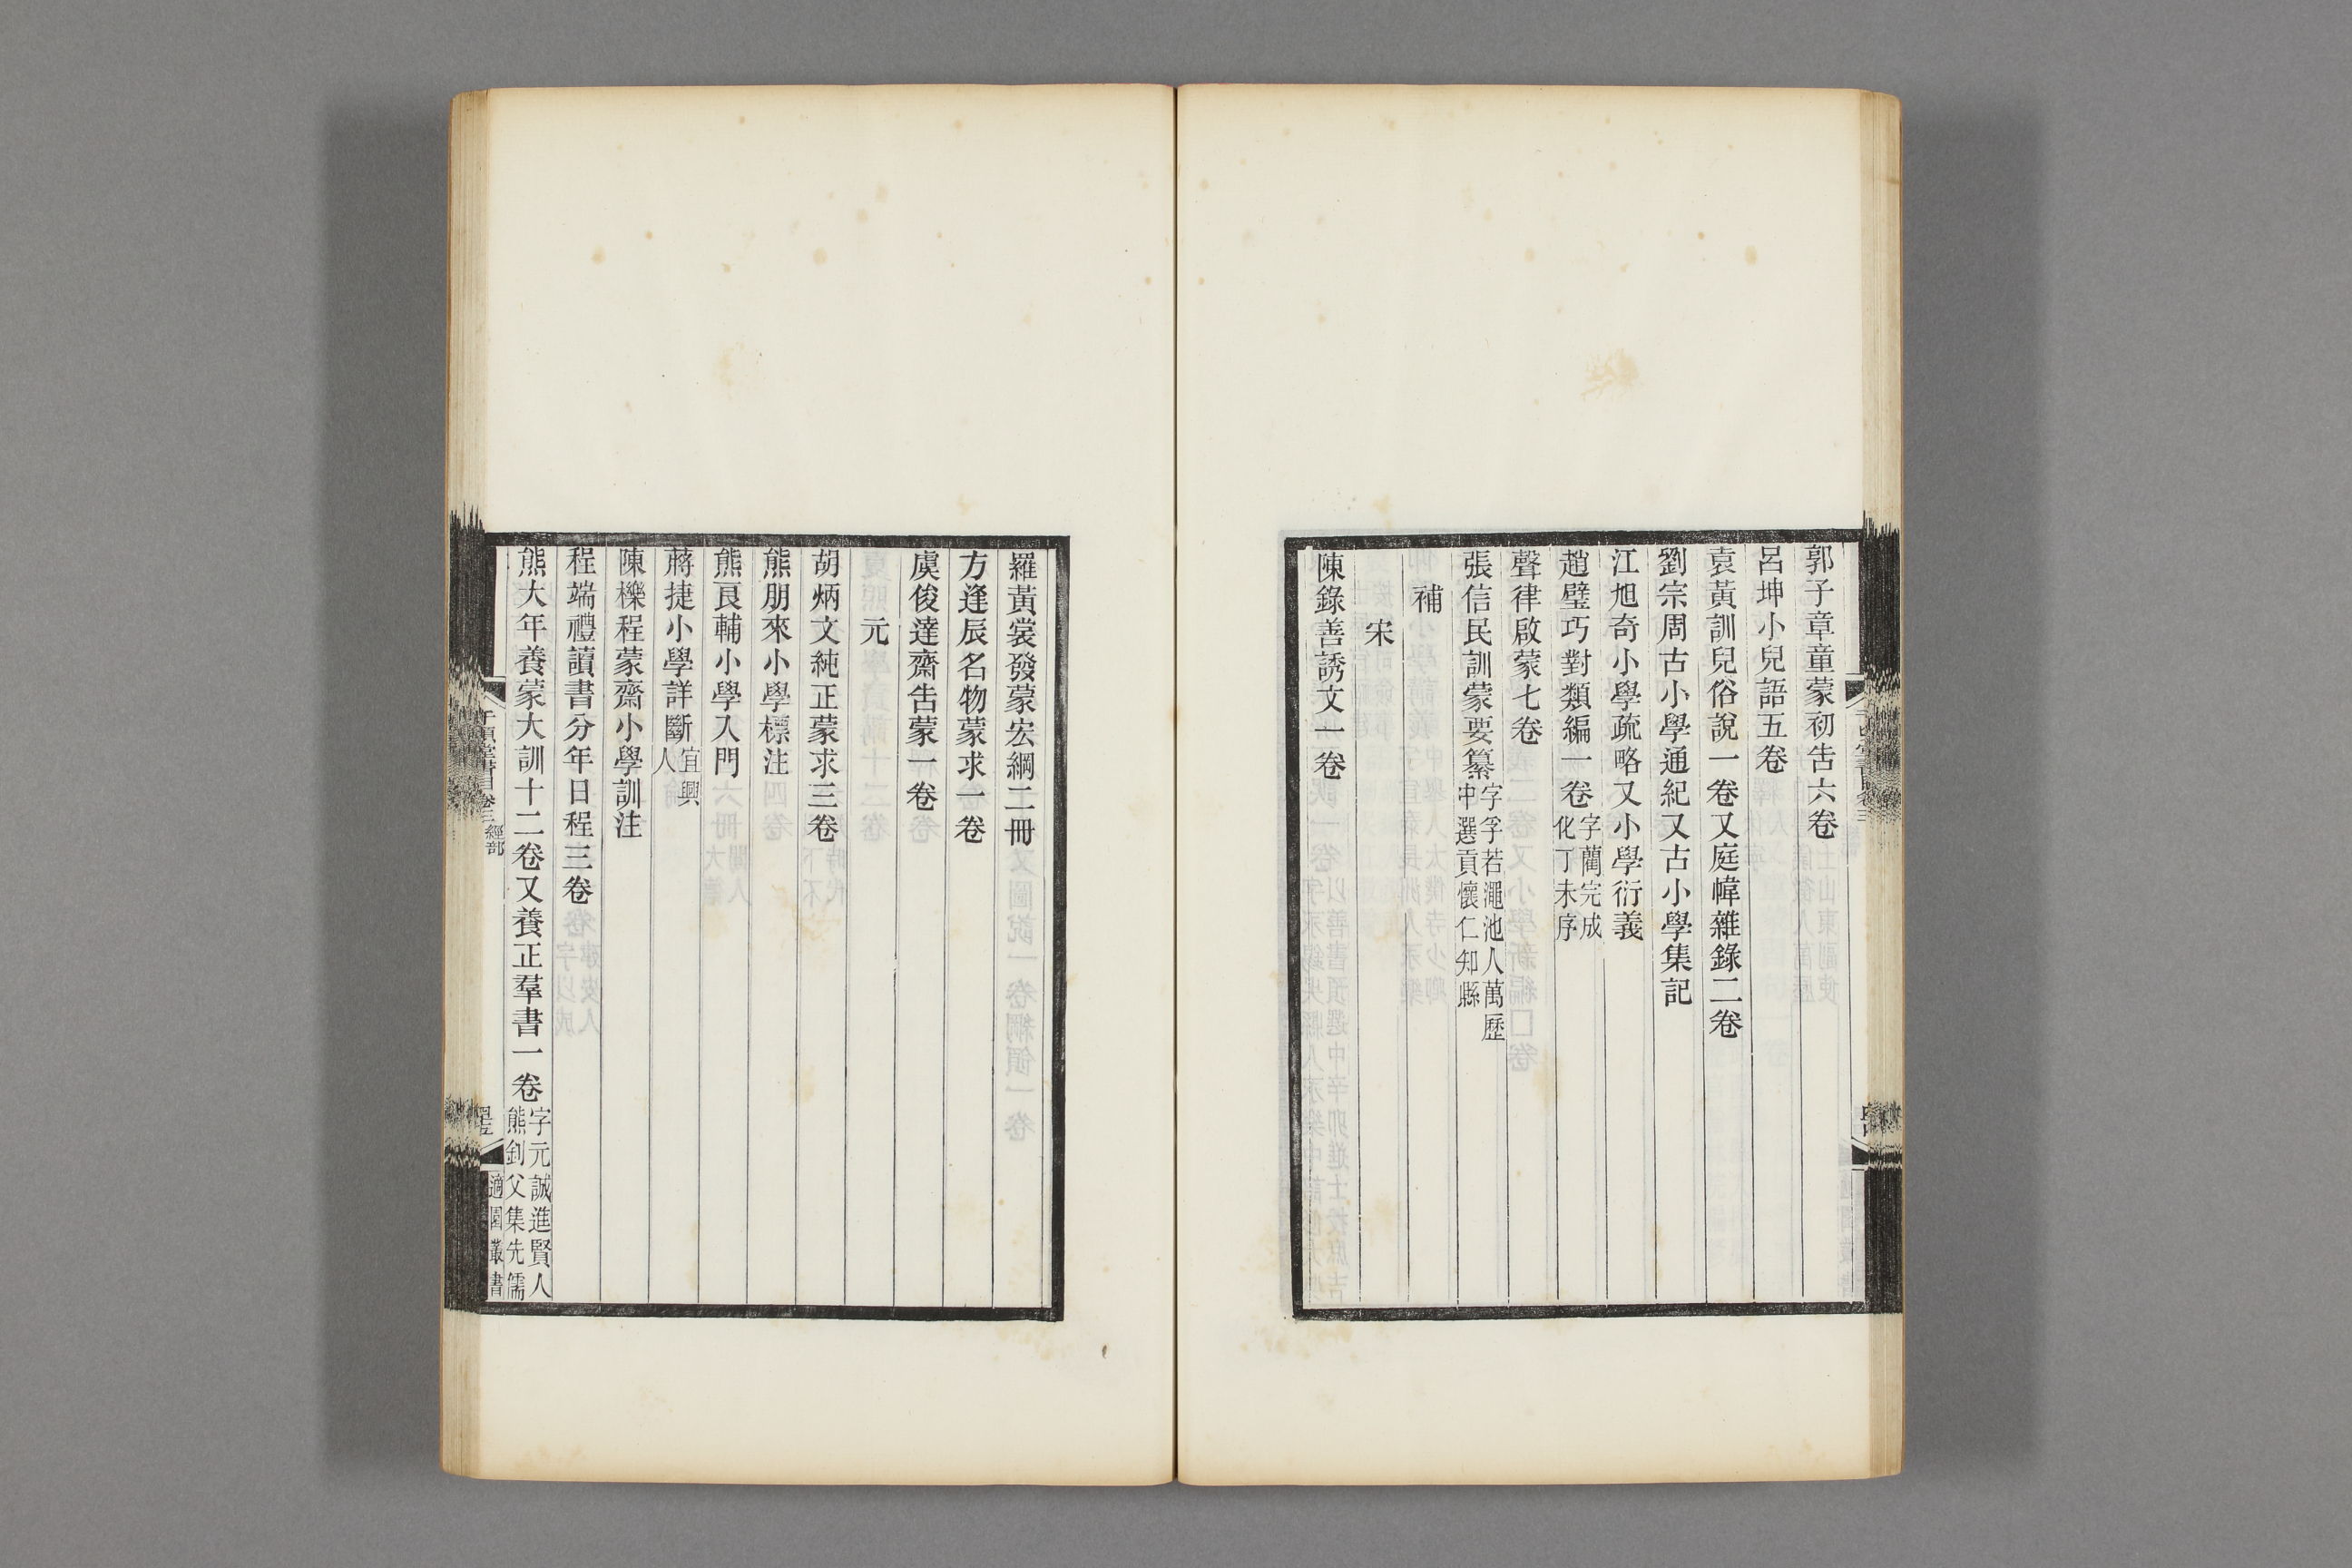 郭子章童蒙初吿六卷
呂坤小兒語五卷
袁黃訓兒俗說一卷又庭幃雜錄二卷
劉宗周古小學通紀又古小學集記
江旭奇小學疏略又小學衍義
趙璧巧對類編一卷字藺完成化丁未序
聲律啟蒙七卷
張信民訓蒙要纂字孚若澠池人萬歷中選貢懷仁知縣
補
宋
陳錄善誘文一卷
羅黃裳發蒙宏綱二冊
方逢辰名物蒙求一卷
虞俊達齋吿蒙一卷
元
胡炳文純正蒙求三卷
熊朋來小學標注
熊良輔小學入門
蔣捷小學詳斷宜興人
陳櫟程蒙齋小學訓注
程端禮讀書分年日程三卷
熊大年養蒙大訓十二卷又養正羣書一卷字元誠進賢人熊釗父集先儒
千頃堂書目卷三 經部
適園叢書